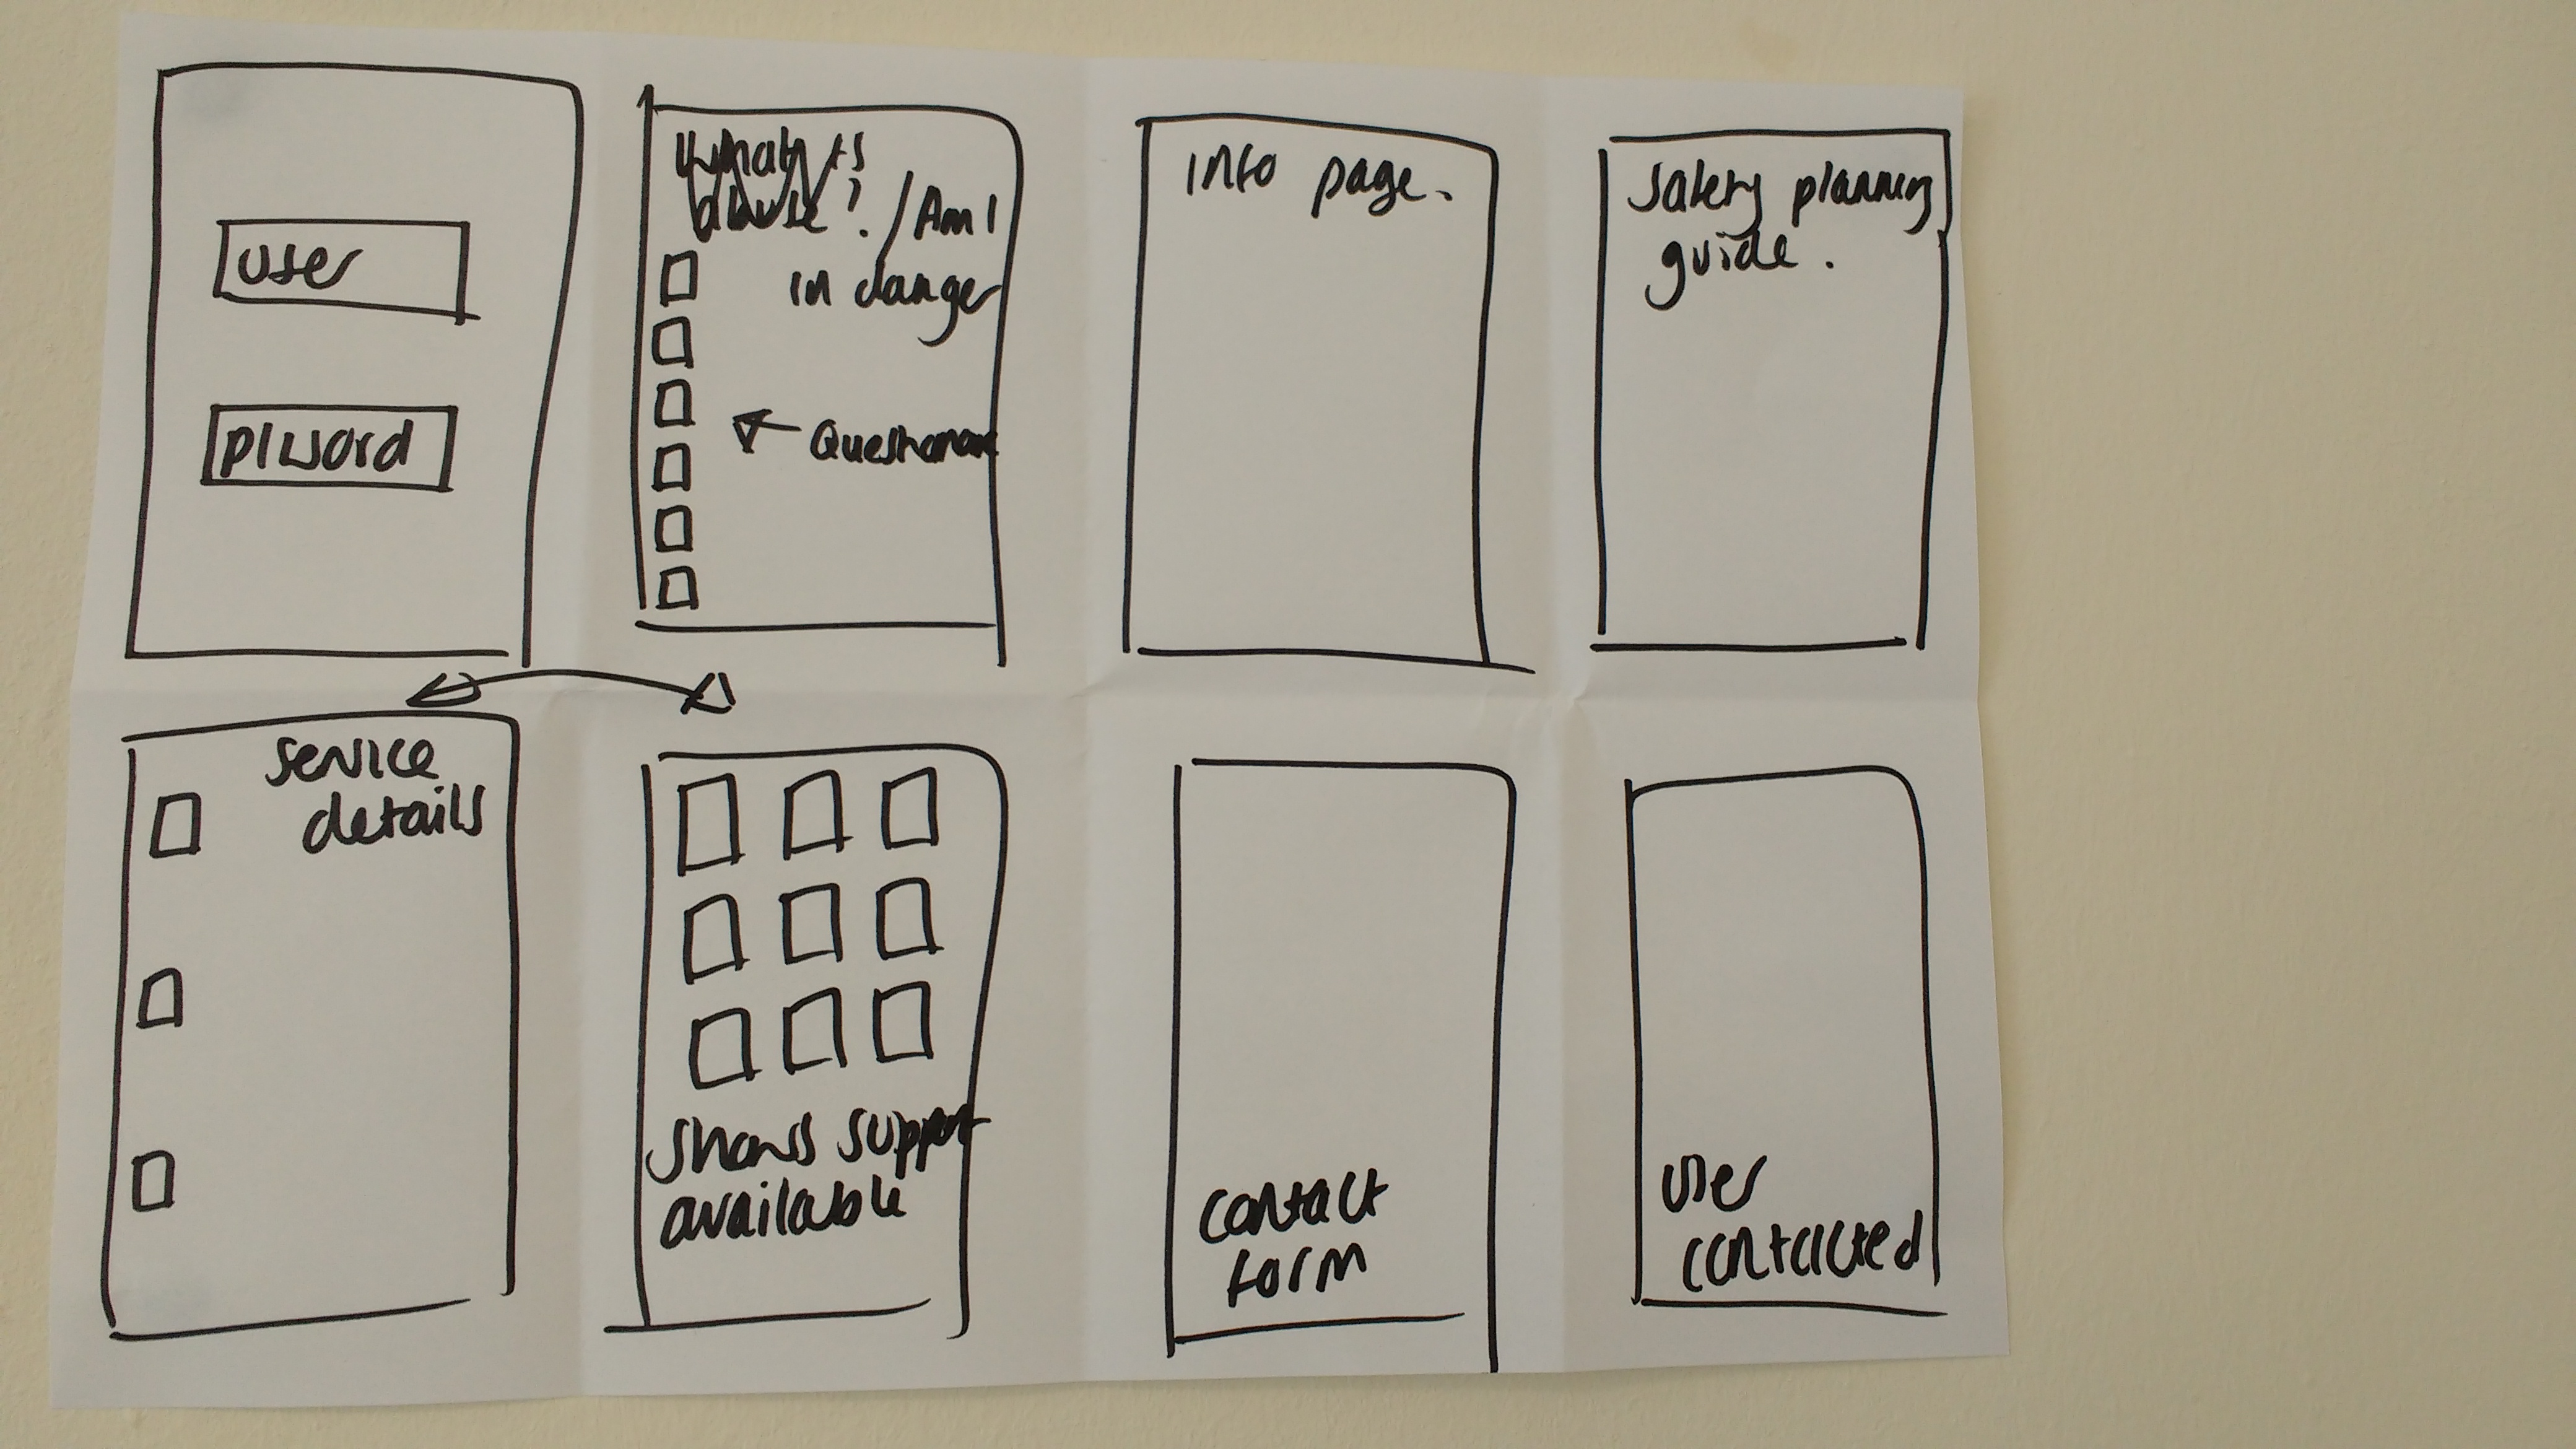 user
p/word
What is
abuse? / Am I
in danger
info page.
safety planning
guide.
service
details
shows support
available
contact
form
user
contacted